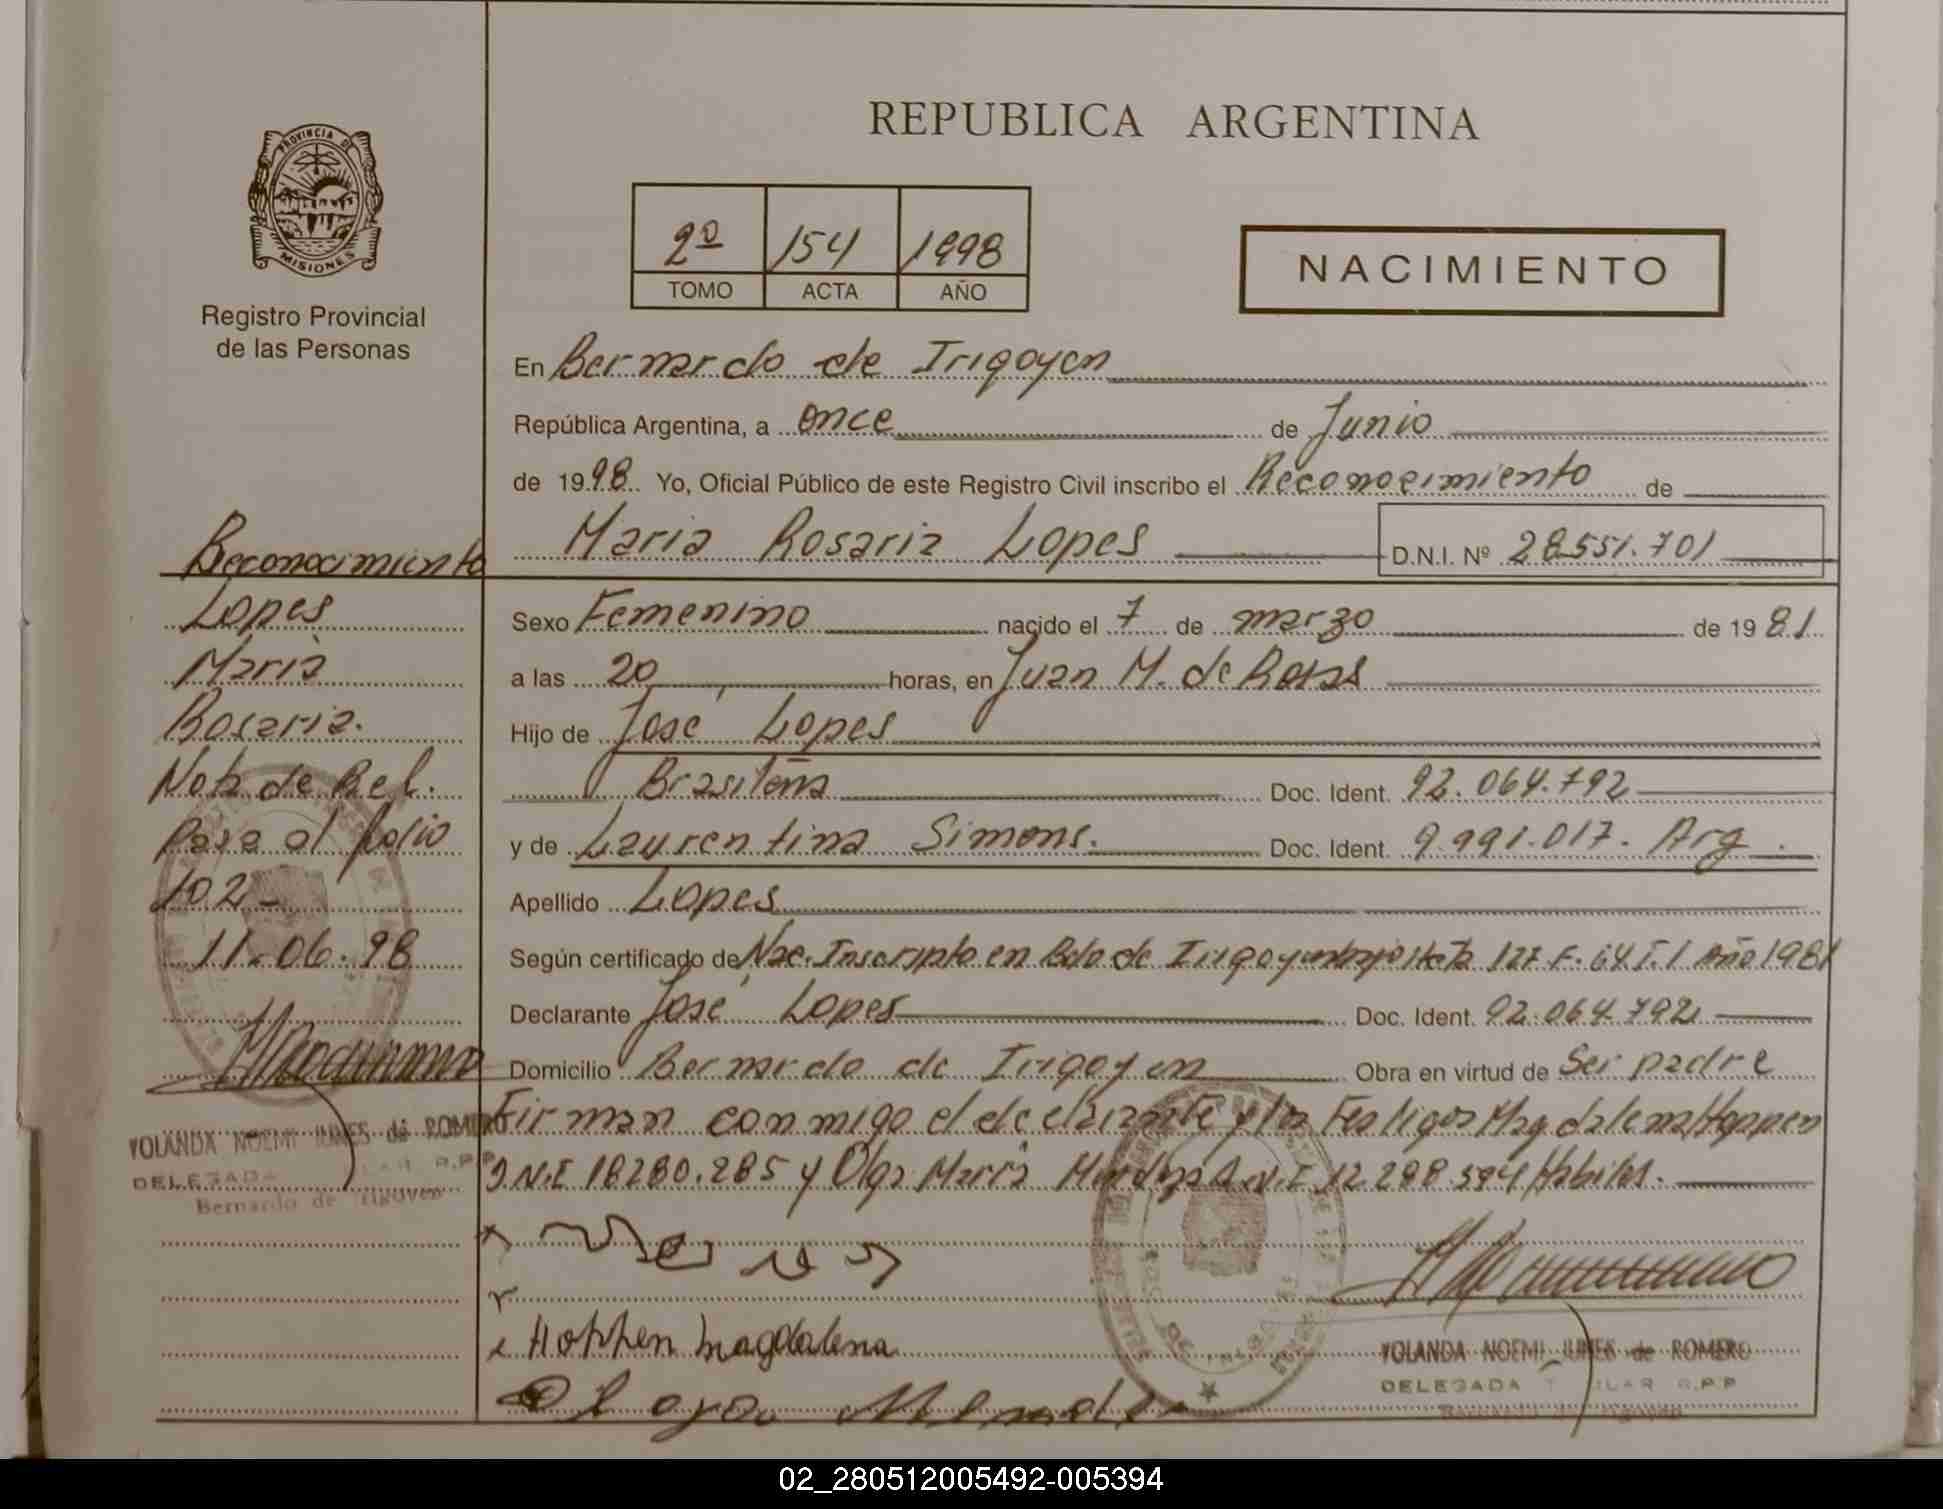 REPUBLICA ARGENTINA
PROVINCIA DE
MISIONES
Registro Provincial
de las Personas
2º 154 1998
TOMO ACTA AÑO
NACIMIENTO
En Bernardo de Irigoyen
República Argentina, a once de Junio
de 1998. Yo, Oficial Público de este Registro Civil inscribo el Reconocimiento de
Maria Rosaria Lopes D.N.I. Nº 28.551.701
Sexo Femenino nacido el 7 de marzo de 1981
a las 20 horas, en Juan M. de Rosas
Hijo de José Lopes
Brasileña Doc. Ident. 92.064.792
y de Laurentina Simons. Doc. Ident. 9.991.017. Arg.
Apellido Lopes
Según certificado de Nac. Inscripto en Bdo de Irigoyen Acta 127 F. 64 T. I Año 1981
Declarante José Lopes Doc. Ident. 92.064.792
Domicilio Bernardo de Irigoyen Obra en virtud de Ser padre
Firman conmigo el declarante y los Testigos Magdalena Hoppen
D.N.I 18280.285 y Olga Maria D.N.I 12.298.594 Habiles.
Hoppen Magdalena
YOLANDA NOEMI JUNES de ROMERO
DELEGADA R.P.P
Reconocimiento
Lopes
Maria
Rosaria.
Nota de Ref.
Pasa al folio
102-
11.06.98
YOLANDA NOEMI JUNES de ROMERO
DELEGADA R.P.P
Bernardo de Irigoyen
02_280512005492-005394